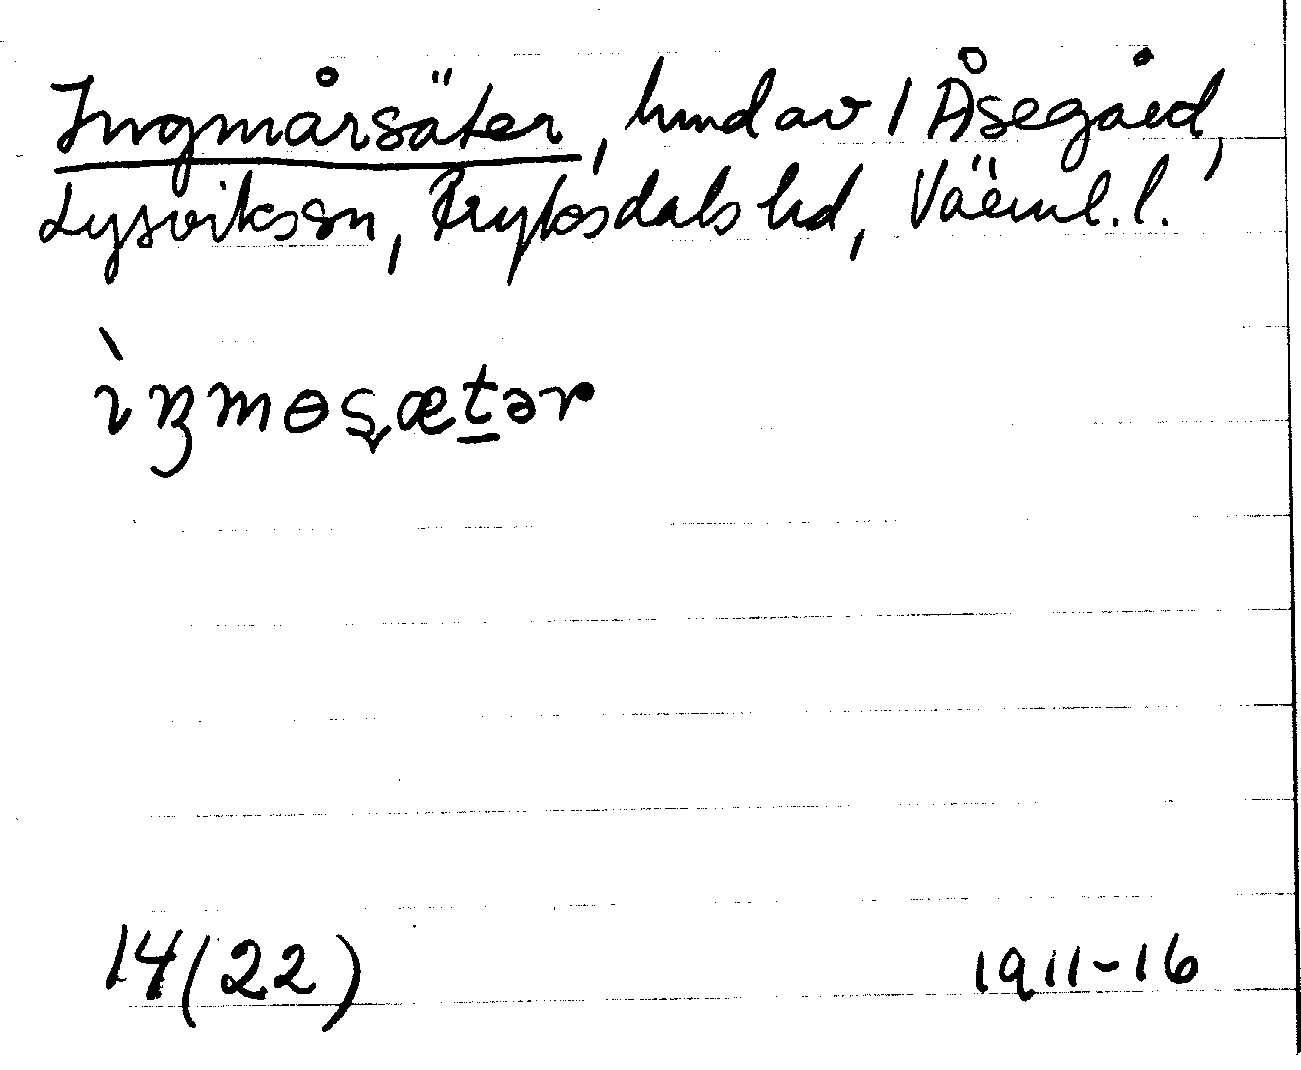 Ingmårsäter, hmd av 1 Åsegård,
Lysviks sn, Fryksdals hd, Värml. l.
ìŋmɵʂætər
14(22) 1911-16